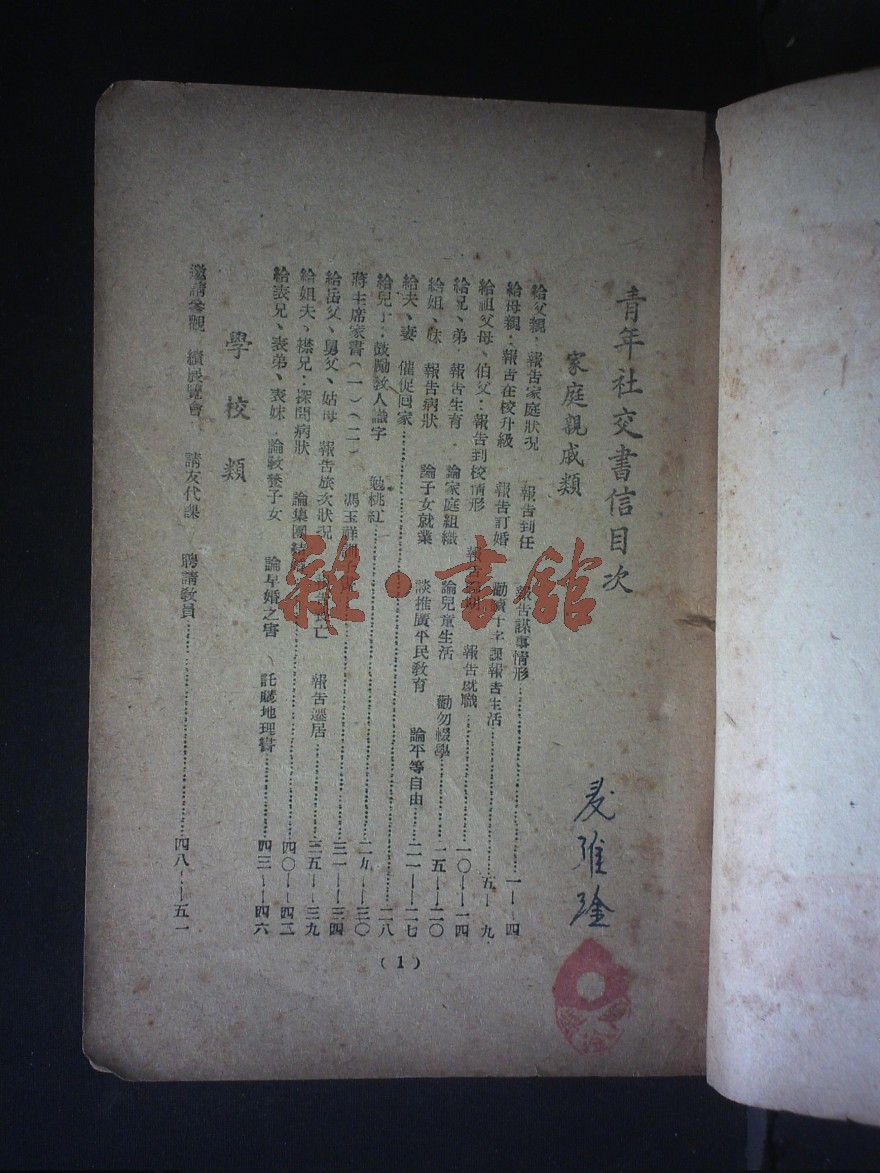 青年社交書信目次
家庭親戚類
給父親:報告家庭狀況 報告到任 報告謀事情形……一——四
給母親:報告在校升級 報告訂婚 勸讀千字課 報告生活……五——九
給祖父母、伯父:報告到校情形 報告 報告就職……一〇——一四
給兄、弟:報告生育 論家庭組織 論兒童生活 勸勿輟學……一五——二〇
給姐、妹 報告病狀 論子女就業 談推廣平民教育 論平等自由……二一——二七
給夫、妻 催促回家……二八
給兒子:鼓勵教人識字 勉桃紅……二九——三〇
蔣主席家書(一)(二) 馮玉祥訓……三一——三四
給岳父、舅父、姑母 報告旅次狀況 亡 報告遷居……三五——三九
給姐夫、襟兄:探問病狀 論集團結婚……四〇——四二
給表兄、表弟、表妹:論教養子女 論早婚之害 託購地理書……四三——四六
學校類
邀請參觀 績展覽會 請友代課 聘請教員……四八——五一
(1)
雜·書館